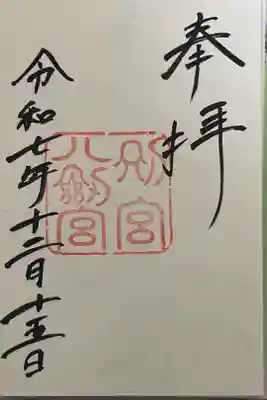 奉拝
別宮
八剣宮
令和七年十二月十五日